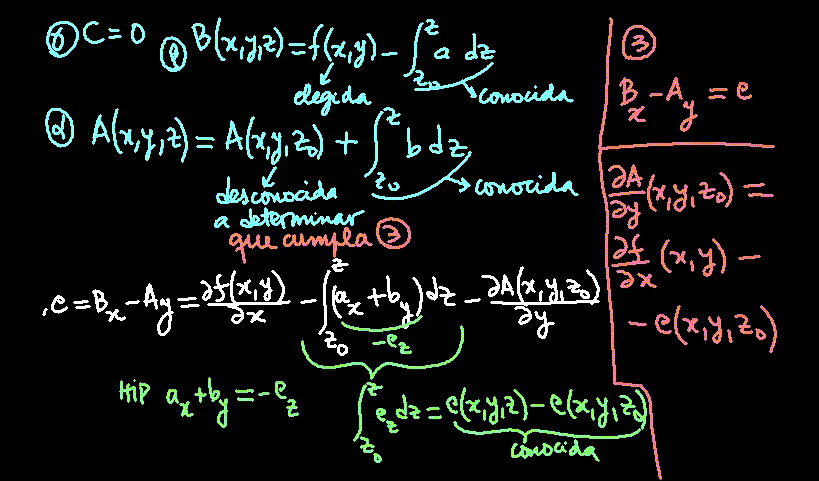 ⓑ C = 0 ⓔ B(x,y,z) = f(x,y) − ∫_{z₀}^{z} a dz
elegida conocida
ⓓ A(x,y,z) = A(x,y,z₀) + ∫_{z₀}^{z} b dz
desconocida conocida
a determinar
que cumpla ③
, e = B_x − A_y = ∂f(x,y)/∂x − ∫_{z₀}^{z} (a_x + b_y) dz − ∂A(x,y,z₀)/∂y
−e_z
HIP a_x + b_y = −e_z ∫_{z₀}^{z} e_z dz = e(x,y,z) − e(x,y,z₀)
conocida
③
B_x − A_y = e
∂A/∂y (x,y,z₀) =
∂f/∂x (x,y) −
− e(x,y,z₀)